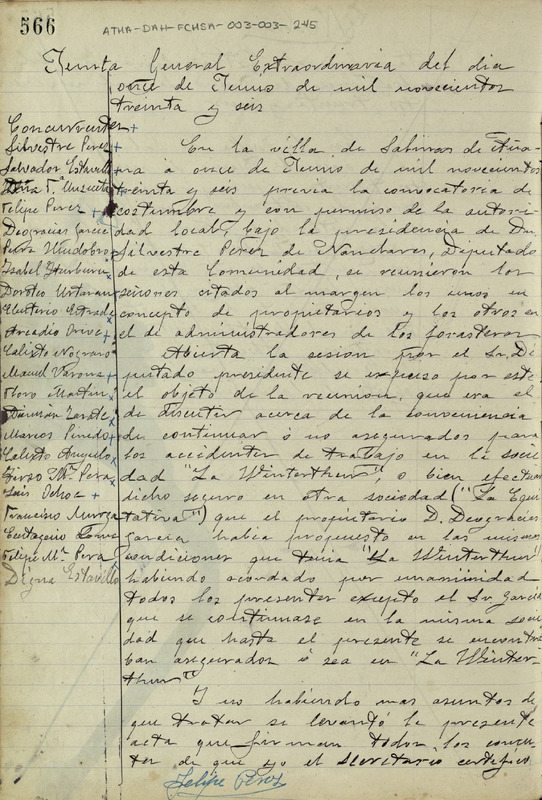 566
ATHA-DAH-FCHSA-003-003-245
Junta General Extraordinaria del dia
once de Junio de mil novecientos
treinta y seis
Concurrentes
Silvestre Perez
Salvador Estavillo
Felipe Perez
Deogracias Garcia
Isabel
Doroteo
Eleuterio
Arcadio Orive
Calisto Nograro
Manuel Varona
Martin
Damian Zarate
Marcos Pinedo
Calisto Angulo
Tirso
Luis Ochoa
Francisco Murga
Eustaquio
Felipe Mª
Digna Estavillo
En la villa de Salinas de Aña-
na á once de Junio de mil novecientos
treinta y seis previa la convocatoria de
costumbre y con permiso de la autori
dad local, bajo la presidencia de Dn.
Silvestre Perez de Nanclares, Diputado
de esta Comunidad, se reunieron los
señores citados al margen los unos en
concepto de propietarios y los otros en
el de administradores de los forasteros
Abierta la sesion por el Sr. Di
putado presidente se expuso por este
el objeto de la reunion, que era el
de discutir acerca de la conveniencia
de continuar ó no asegurados para
los accidentes de trabajo en la socie
dad "La Winterthur", o bien efectuar
dicho seguro en otra sociedad ("La Equi
tativa") que el propietario D. Deogracias
Garcia habia propuesto en las mismas
condiciones que tenia "La Winterthur"
habiendo acordado por unanimidad
todos los presentes excepto el Sr. Garcia
que se continuase en la misma socie
dad que hasta el presente se encontra
ban asegurados ó sea en "La Winter-
thur"
Y no habiendo mas asuntos de
que tratar se levantó la presente
acta que firman todos los concurren
tes de que yo el Secretario certifico
Felipe Perez